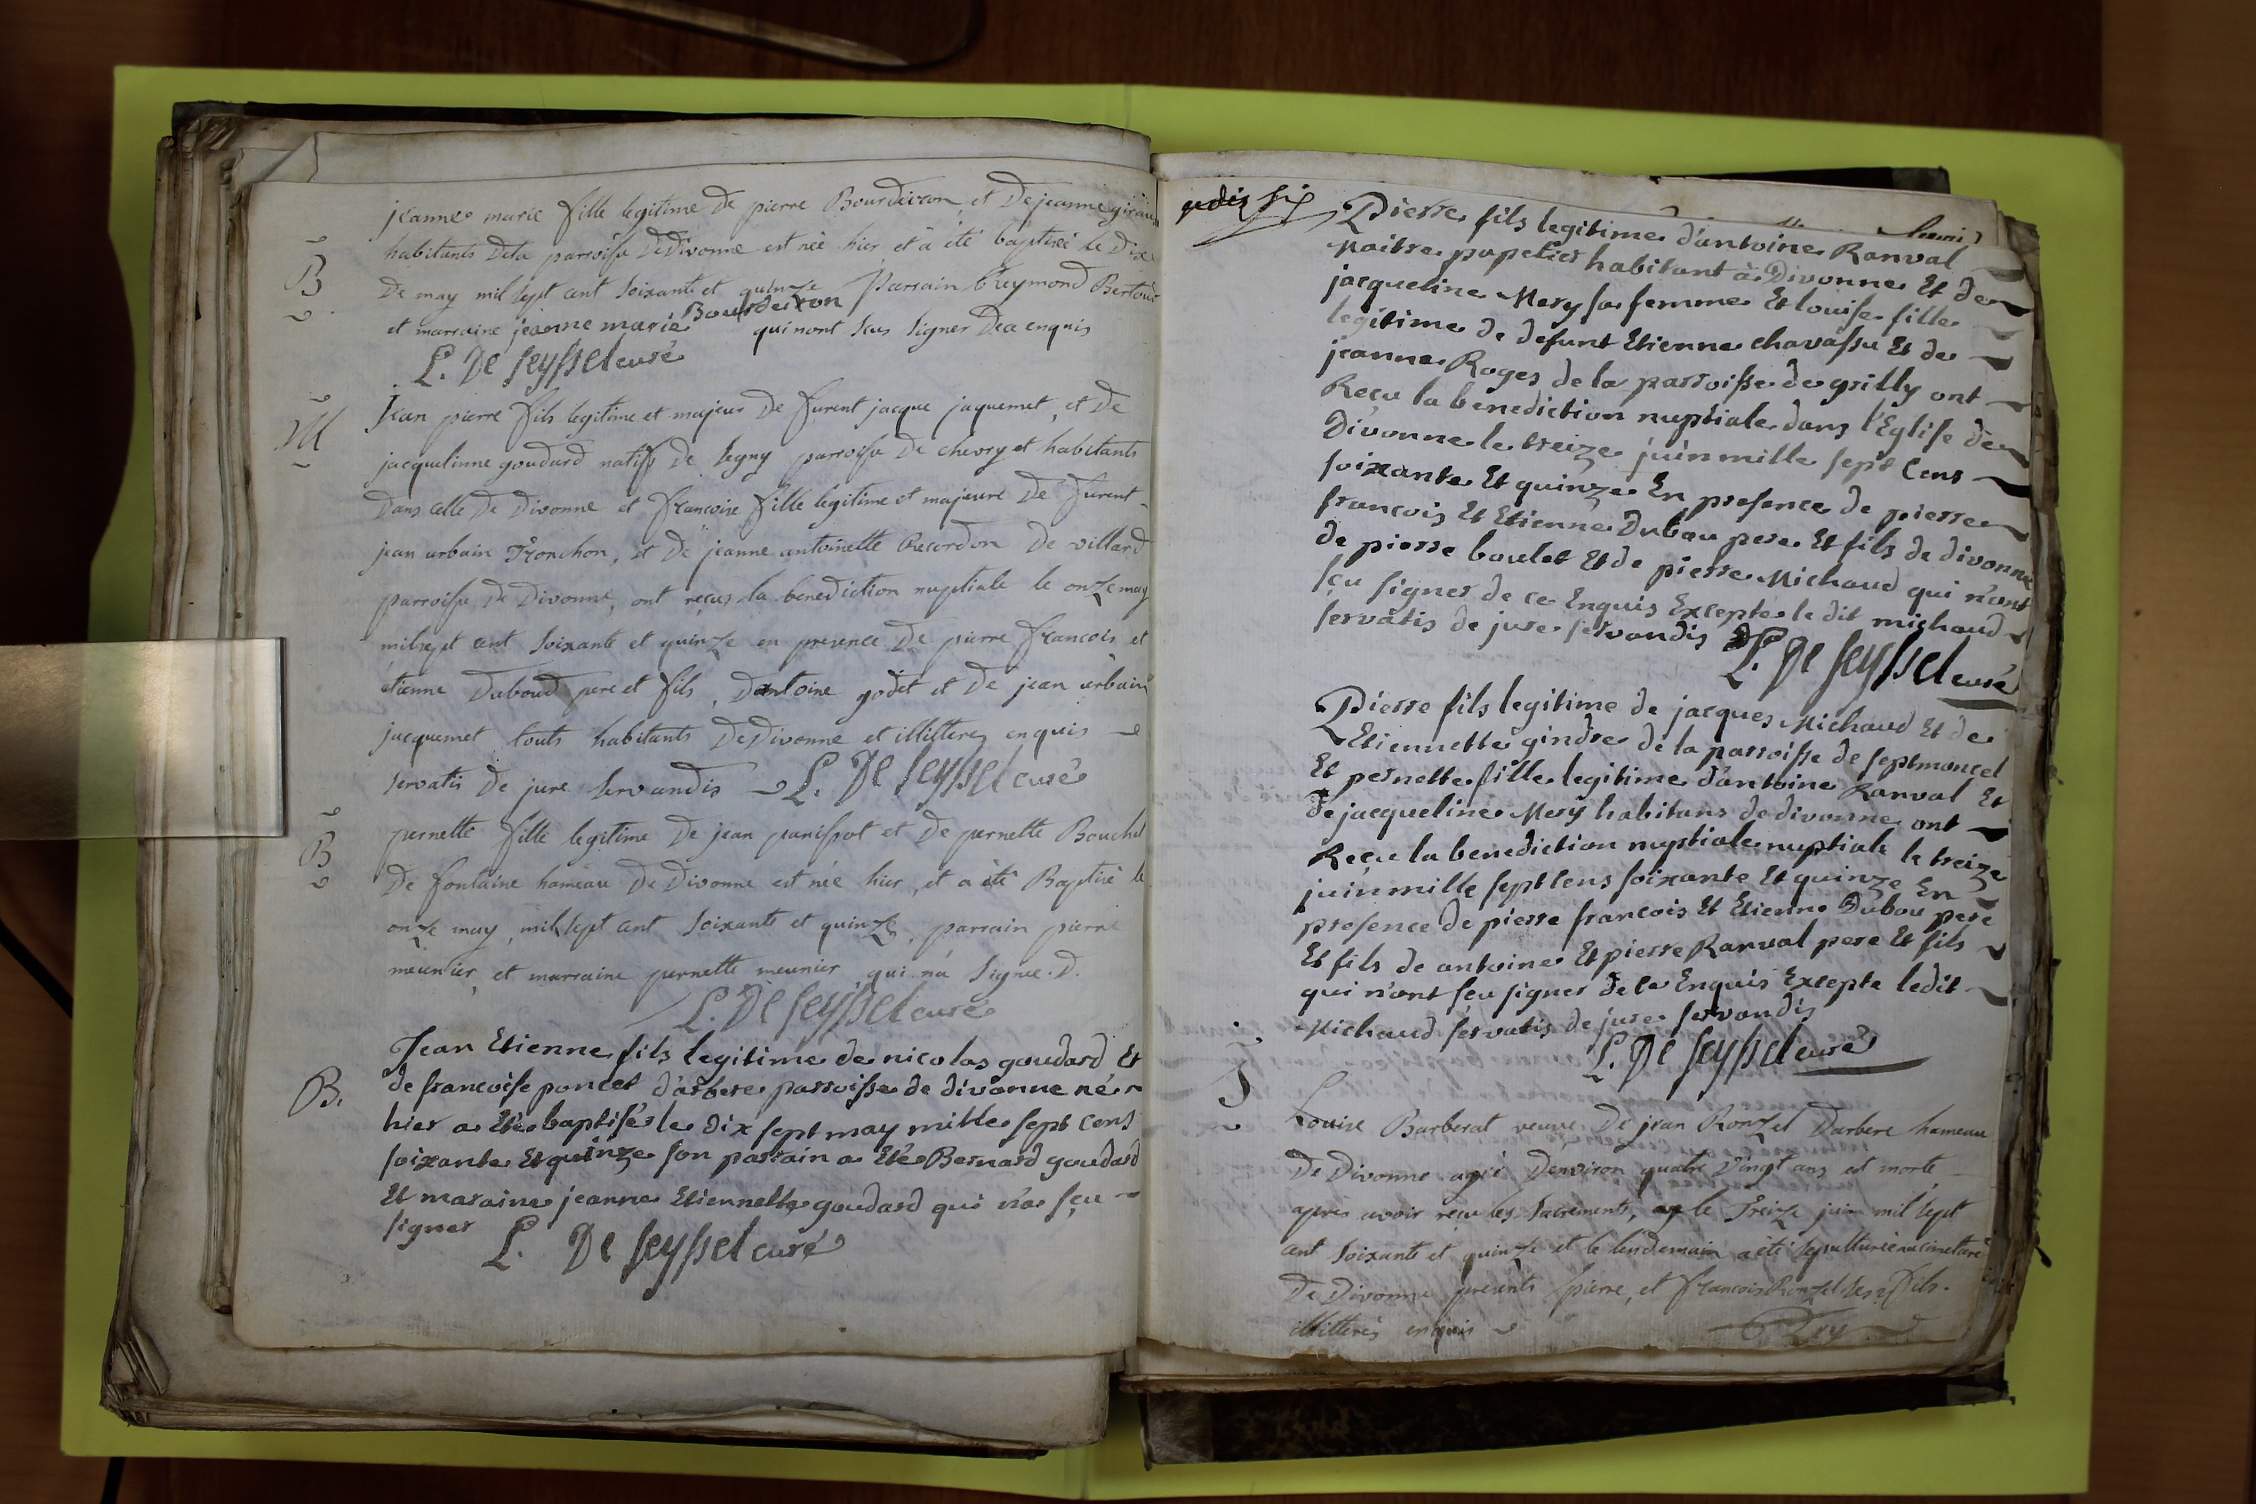 jeanne marie fille legitime de pierre Bourdeiron et de jeanne
habitants dela parroisse de Divonne est née hier et a été baptisée le
B
de may mil sept cent soixante et quinze parrain Reymond
et marraine jeanne marie Bourdeiron qui nont scus signer de ce enquis
L. De seyssel curé
M
Jean pierre fils legitime et majeur de furent jacque jaquemet, et de
jacquelinne goudard natifs de segny parroisse de chevry et habitants
dans celle de Divonne et francoise fille legitime et majeure de furent
jean urbain Tronchon, et de jeanne antoinette Recordon de villard
parroisse de Divonne, ont reçus la benediction nuptiale le onze may
mil sept cent soixante et quinze en presence de pierre francois et
étienne Duboud pere et fils, Dantoine godet et de jean urbain
jacquemet touts habitants De Divonne et illitteres enquis
servatis de jure servandis L. De seyssel curé
B
pernette fille legitime de jean panissot et de pernette Bouchet
de fontaine hameau de Divonne est née hier, et a été Baptisé le
onze may, mil sept cent soixante et quinze, parrain pierre
meunier, et marraine pernette meunier, qui n'a signée. D.
L. De seyssel curé
Jean Etienne fils legitime de nicolas goudard Et
de francoise poncet d'arbere parroisse de divonne né
B.
hier a été baptisés le dix sept may mille sept cens
soixante Et quinze son parrain a Eté Bernard goudard
Et maraine jeanne Etiennette goudard qui n'a sçu
signer L. De seyssel curé
gedix six
Pierre fils legitime d'antoine Ranval
Maitre papetier habitant à Divonne Et de
jacqueline Mery sa femme Et louise fille
legitime de defunt Etienne chavassu Et de
jeanne Roges de la parroisse de grilly ont
Reçu la benediction nuptiale dans l'Eglise de
Divonne le treize juin mille sept Cens
soixante Et quinze En presence de pierre
francois Et Etienne Dubou pere Et fils de divonne
de pierre boulet Et de pierre Michaud qui n'ont
sçu signer de ce Enquis Excepté le dit michaud
servatis de jure servandis L. De seyssel curé
Pierre fils legitime de jacques Michaud Et de
Etiennette gindre de la parroisse de septmoncel
Et pernette fille legitime d'antoine Ranval Et
de jacqueline Mery habitans de divonne ont
Reçu la benediction nuptiale nuptiale le treize
juin mille sept Cens soixante Et quinze En
presence de pierre francois Et Etienne Dubou pere
Et fils de antoine Et pierre Ranval pere Et fils
qui n'ont sçu signer de ce Enquis Excepte ledit
Michaud servatis de jure servandis
L. De seyssel curé
Louise Barberat veuve de jean Ronzel Darbere hameau
De Divonne agée d'environ quatre vingt ans est morte
apres avoir reçu les sacrements, le Treize juin mil sept
cent soixante et quinze et le lendemain a été sepulturée au cimettere
De Divonne presents pierre, et francois Ronzel ses fils.
illitterés enquis